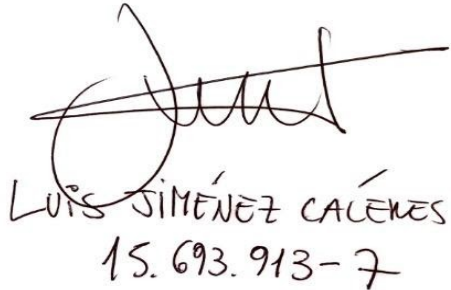 LUIS JIMÉNEZ CÁCERES
15.693.913-7